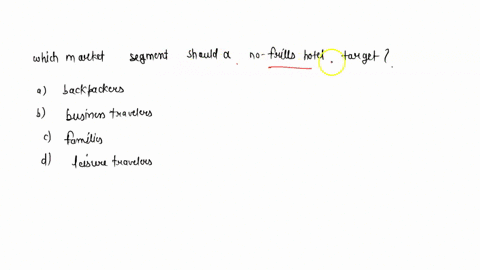 which market segment should a no-frills hotel target?
a) backpackers
b) business travelers
c) families
d) leisure travelers